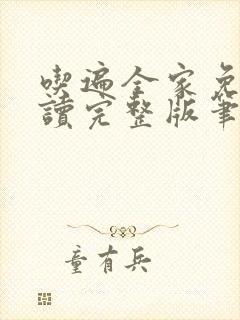 喫遍全家免
讀完整版筆
童有兵